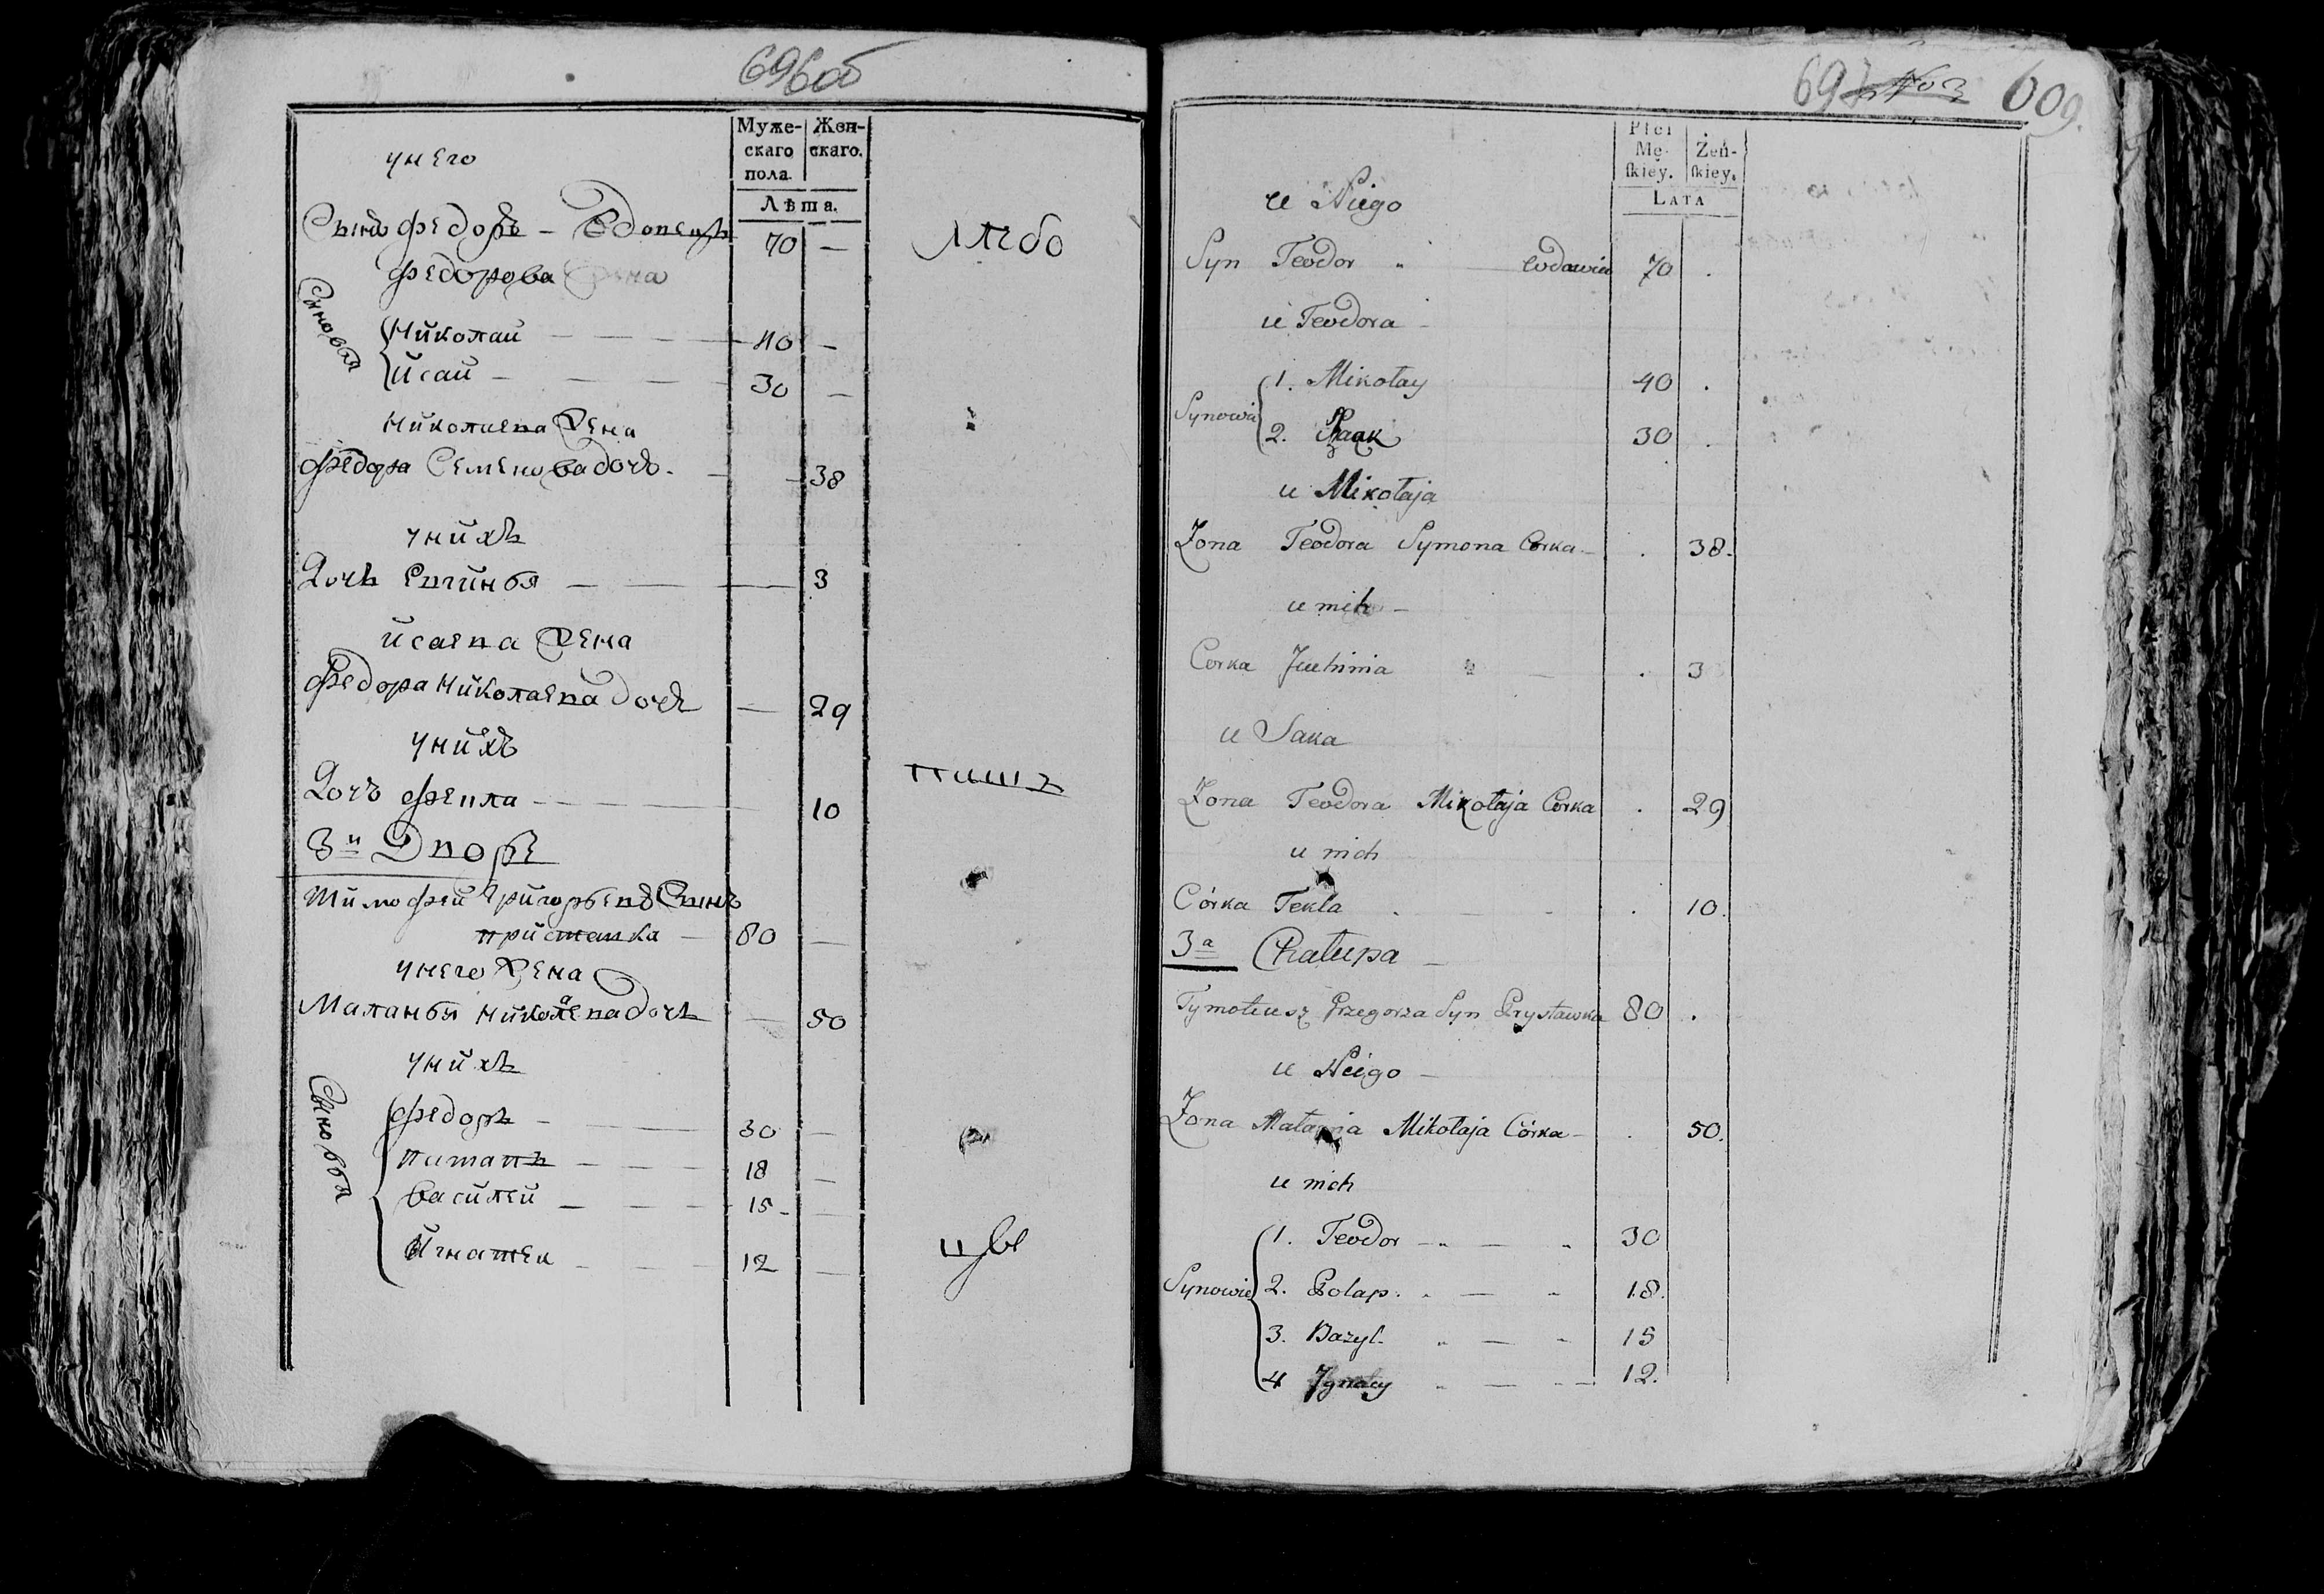 696об
Муже-
скаго
пола.
Жен-
скаго.
Лѣта.
унего
Сынъ Федоръ — Вдовецъ 70 —
Федорова
Сыновья
Николай — — — 40 —
Исай — — — 30 —
Николаева Жена
Федора Семенова дочь — 38
унихъ
Дочь Евгинья — — 3
Исаева Жена
Федора Николаева дочь — 29
унихъ
Дочь Фекла — — — 10
3й Дворъ
Тимофей Григорьевъ Сынъ
приставка — 80 —
унего Жена
Маланья Николаева дочь — 50
унихъ
Сыновья
Федоръ — — 30 —
Потапъ — — — 18 —
Василей — — — 15 —
Игнатей — — — 12 —
697 609.
Płci
Mę-
ſkiey.
Żeń-
ſkiey.
LATA
u Niego
Syn Teodor wdowiec 70 .
u Teodora
Synowie
1. Mikołay 40 .
2. 30 .
u Mikołaja
Żona Teodora Symona Córka — . 38.
u nich —
Corka Juchinia — . 3
u Saka
Żona Teodora Mikołaja Corka . 29
u nich
Córka Tekla . 10.
3a Chałupa —
Tymoteusz Grzegorza Syn Prystawka 80 .
u Niego —
Żona Małania Mikołaja Córka — . 50.
u nich
Synowie
1. Teodor — 30
2. Potap. — 18.
3. Bazyl — 15
4 Ignacy — 12.